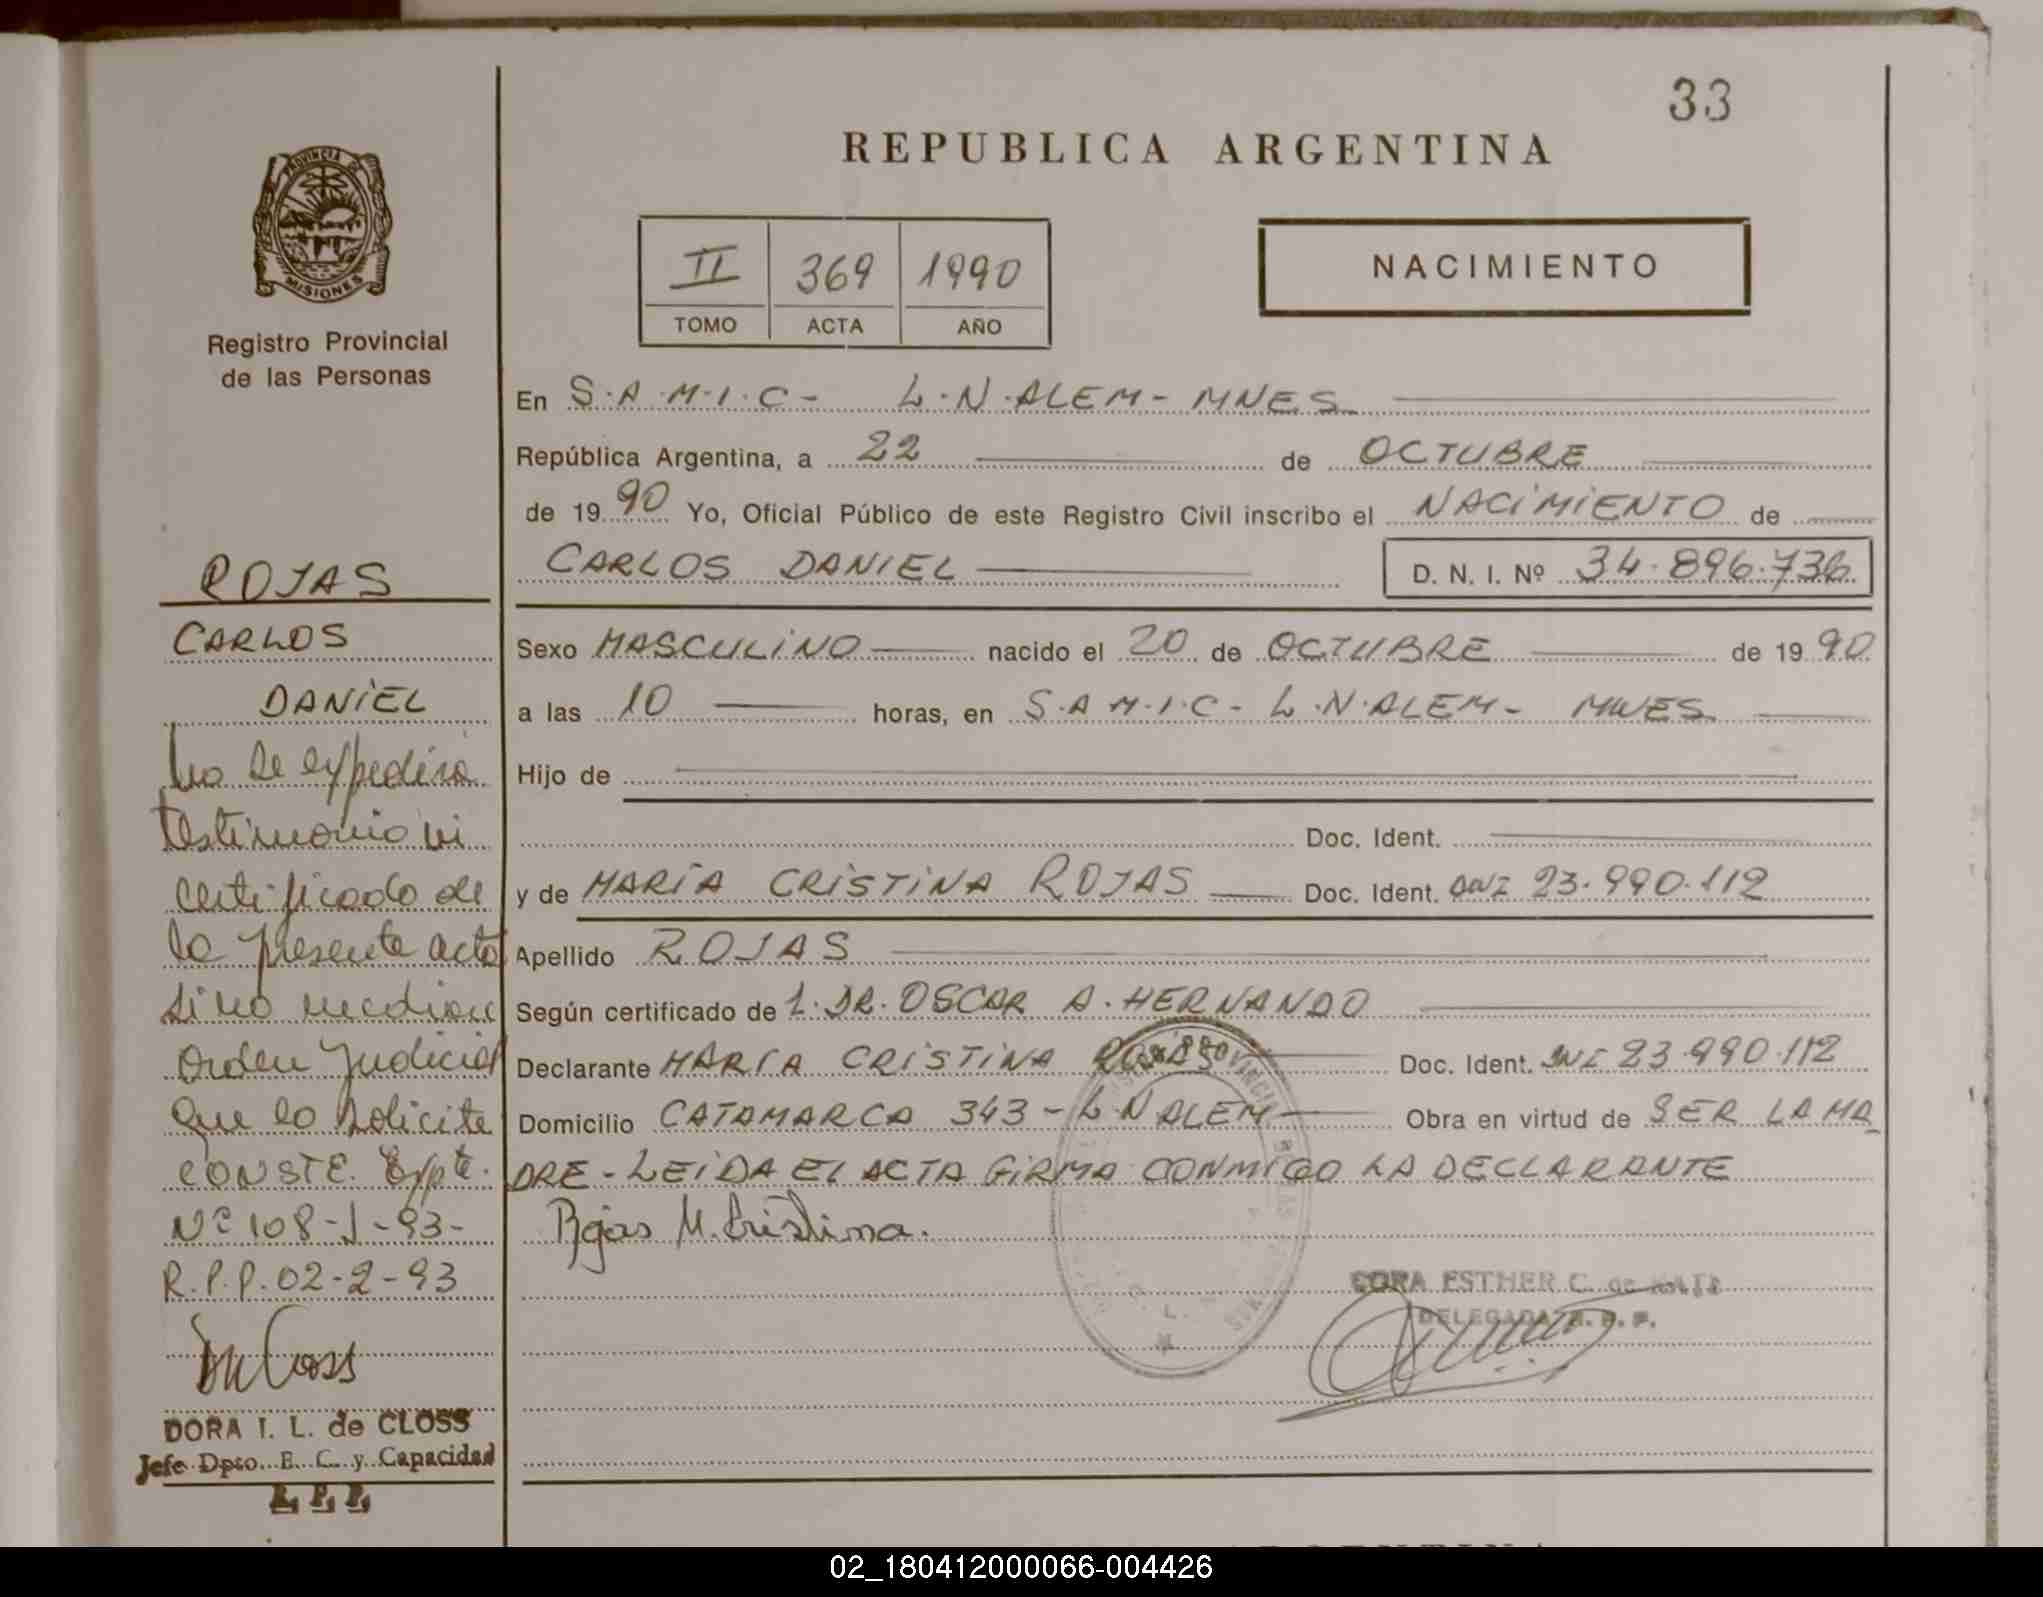 33
REPUBLICA ARGENTINA
PROVINCIA DE
MISIONES
Registro Provincial
de las Personas
II 369 1990
TOMO ACTA AÑO
NACIMIENTO
En S.A.M.I.C- L.N.ALEM- MNES
República Argentina, a 22 de OCTUBRE
de 1990 Yo, Oficial Público de este Registro Civil inscribo el NACIMIENTO de
CARLOS DANIEL D. N. I. Nº 34.896.736
Sexo MASCULINO nacido el 20 de OCTUBRE de 1990
a las 10 horas, en S.A.M.I.C- L.N.ALEM- MNES
Hijo de
Doc. Ident.
y de MARIA CRISTINA ROJAS Doc. Ident. DNI 23.990.112
Apellido ROJAS
Según certificado de 1.DR.OSCAR A.HERNANDO
Declarante MARIA CRISTINA ROJAS Doc. Ident. DNI 23.990.112
Domicilio CATAMARCA 343-L N ALEM Obra en virtud de SER LA MA_
DRE-LEIDA EL ACTA FIRMA CONMIGO LA DECLARANTE
Rojas M. Cristina.
ESTHER C. de
DELEGADA R. P. P.
ROJAS
CARLOS
DANIEL
No se expedirá
testimonio ni
certificado de
la presente acta
sino median
orden judicial
que lo solicite
CONSTE. Expte.
Nº 108-J-93-
R.P.P. 02-2-93
DORA I. L. de CLOSS
Jefe Dpto. E. C. y Capacidad
R. P. P.
02_180412000066-004426